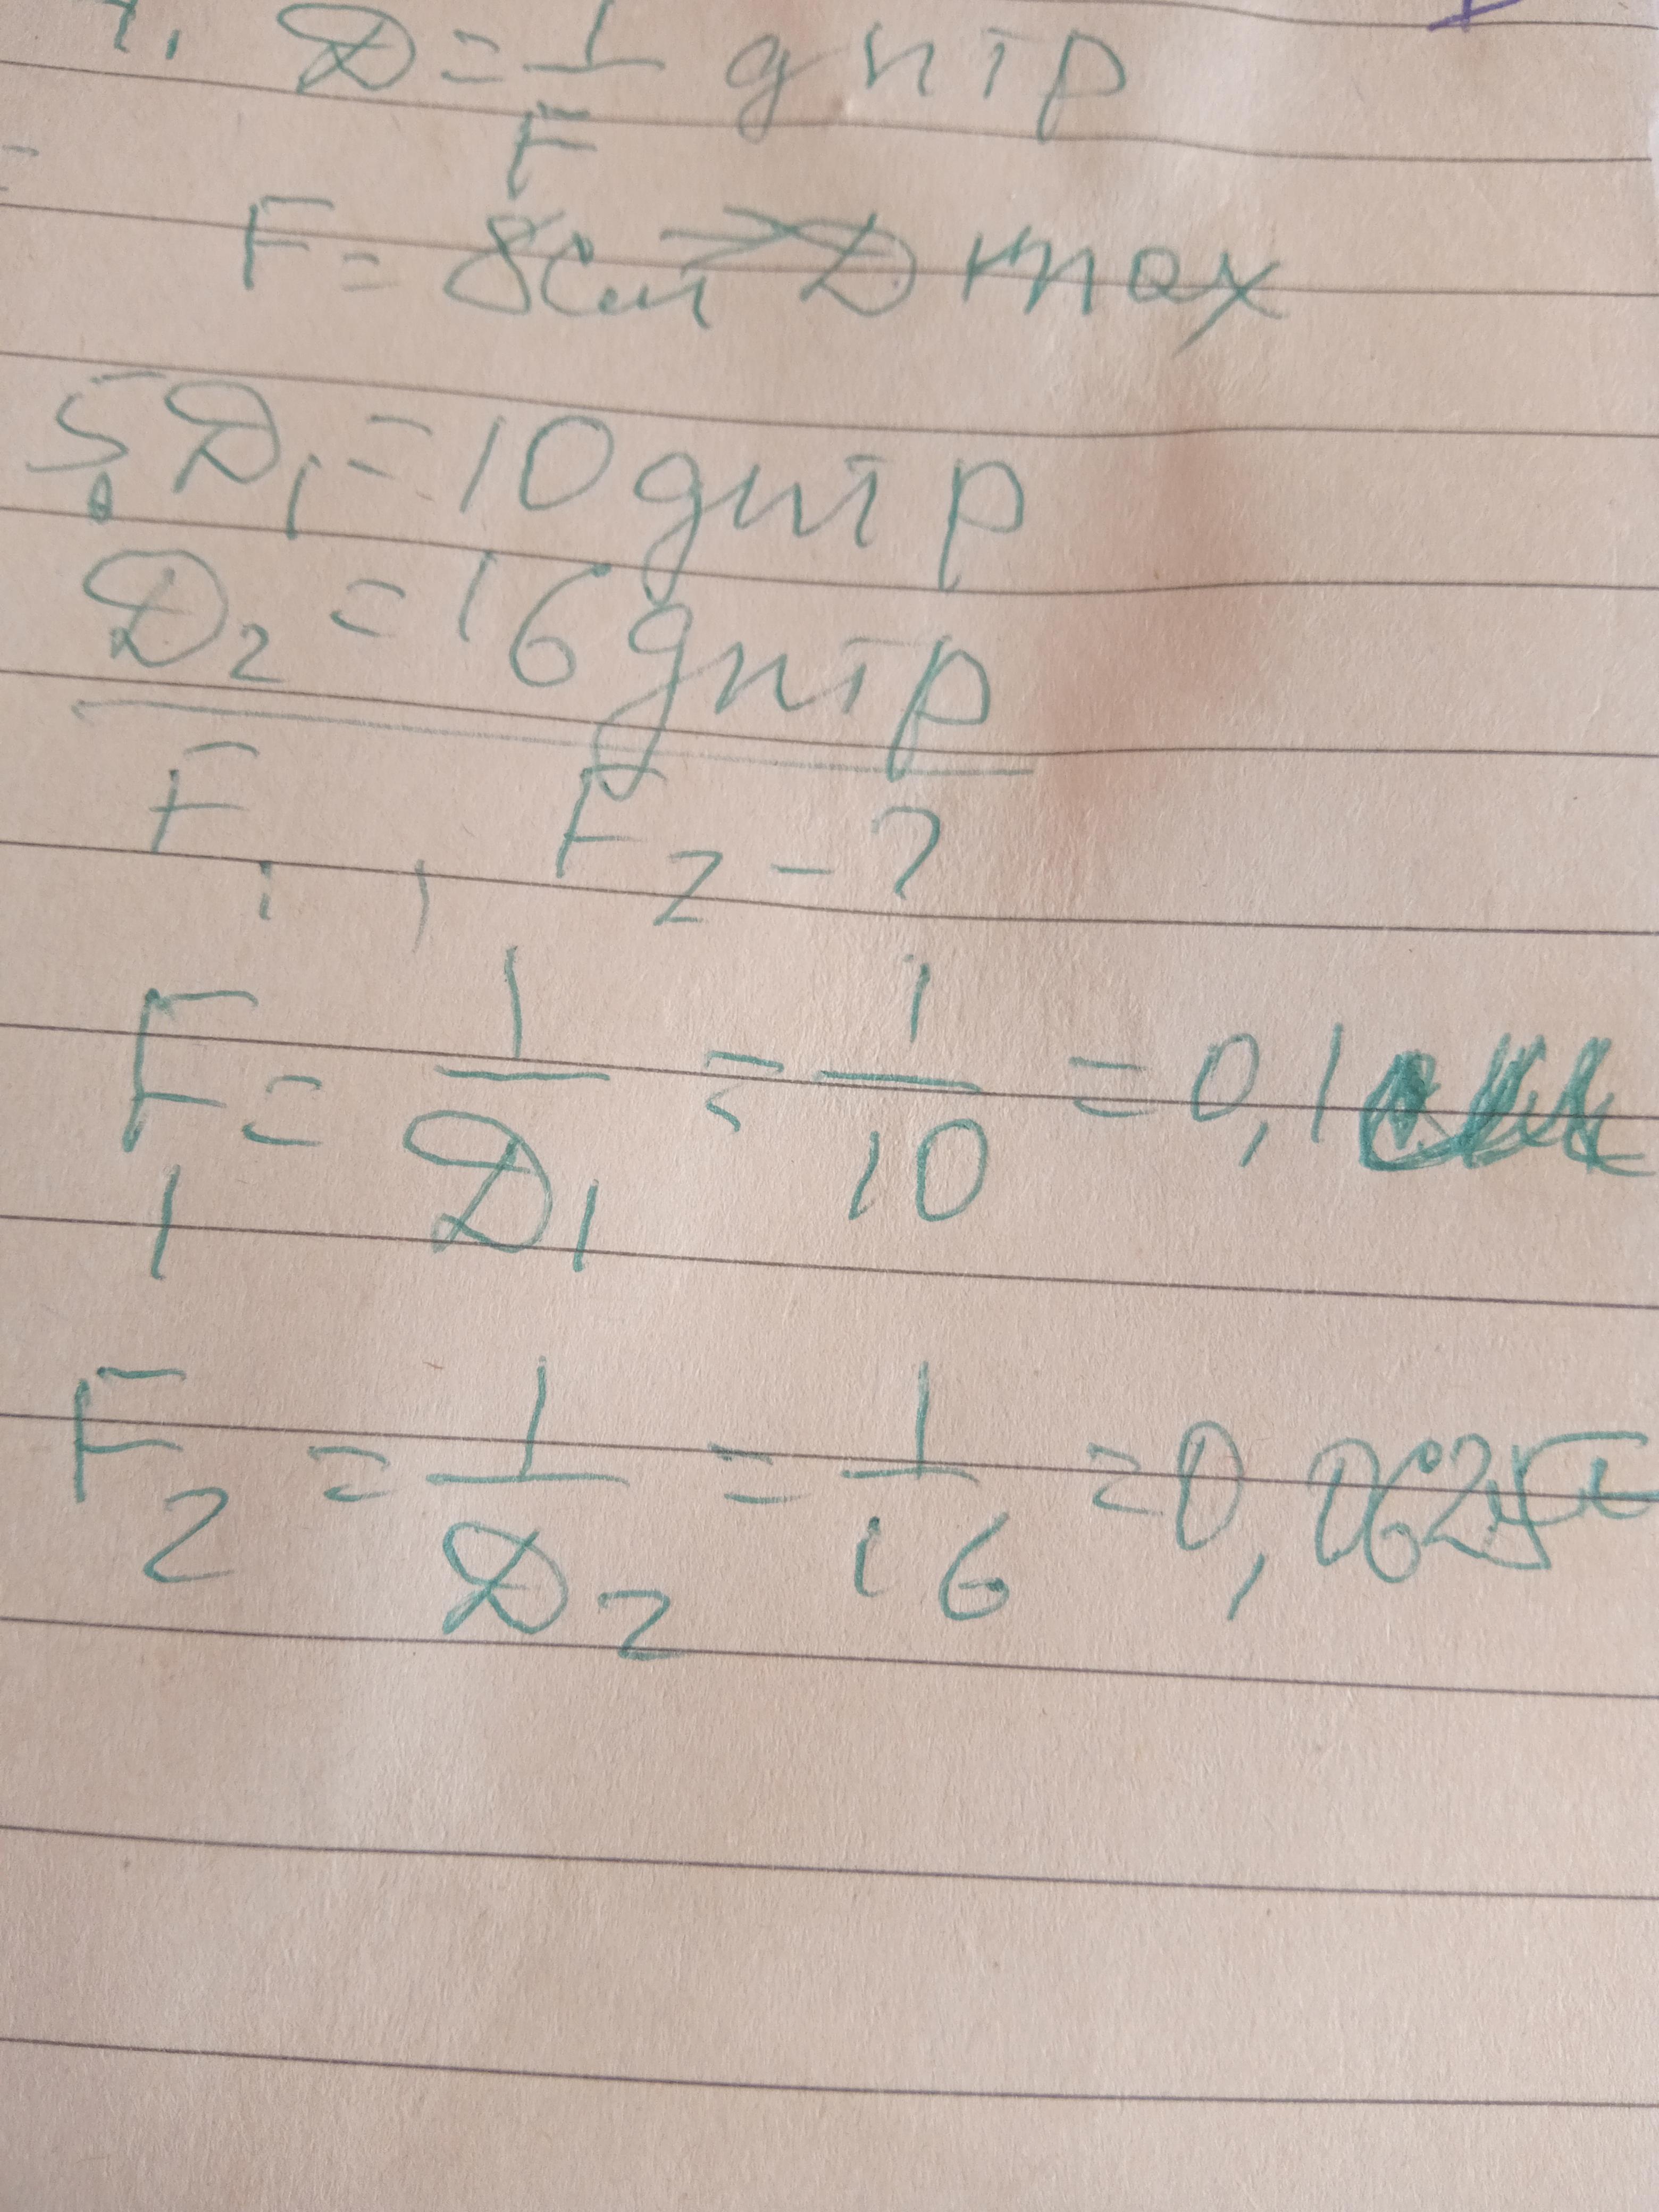 4. D = 1/F дптр
F = 8см ⇒ D max
5. D₁ = 10 дптр
D₂ = 16 дптр
F₁, F₂ - ?
F₁ = 1/D₁ = 1/10 = 0,1
F₂ = 1/D₂ = 1/16 = 0,0625